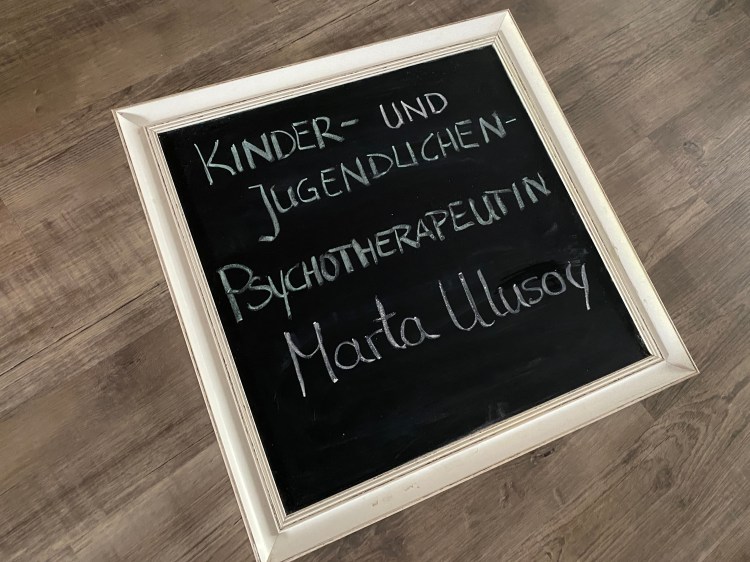 KINDER- UND
JUGENDLICHEN-
PSYCHOTHERAPEUTIN
Marta Ulusoy